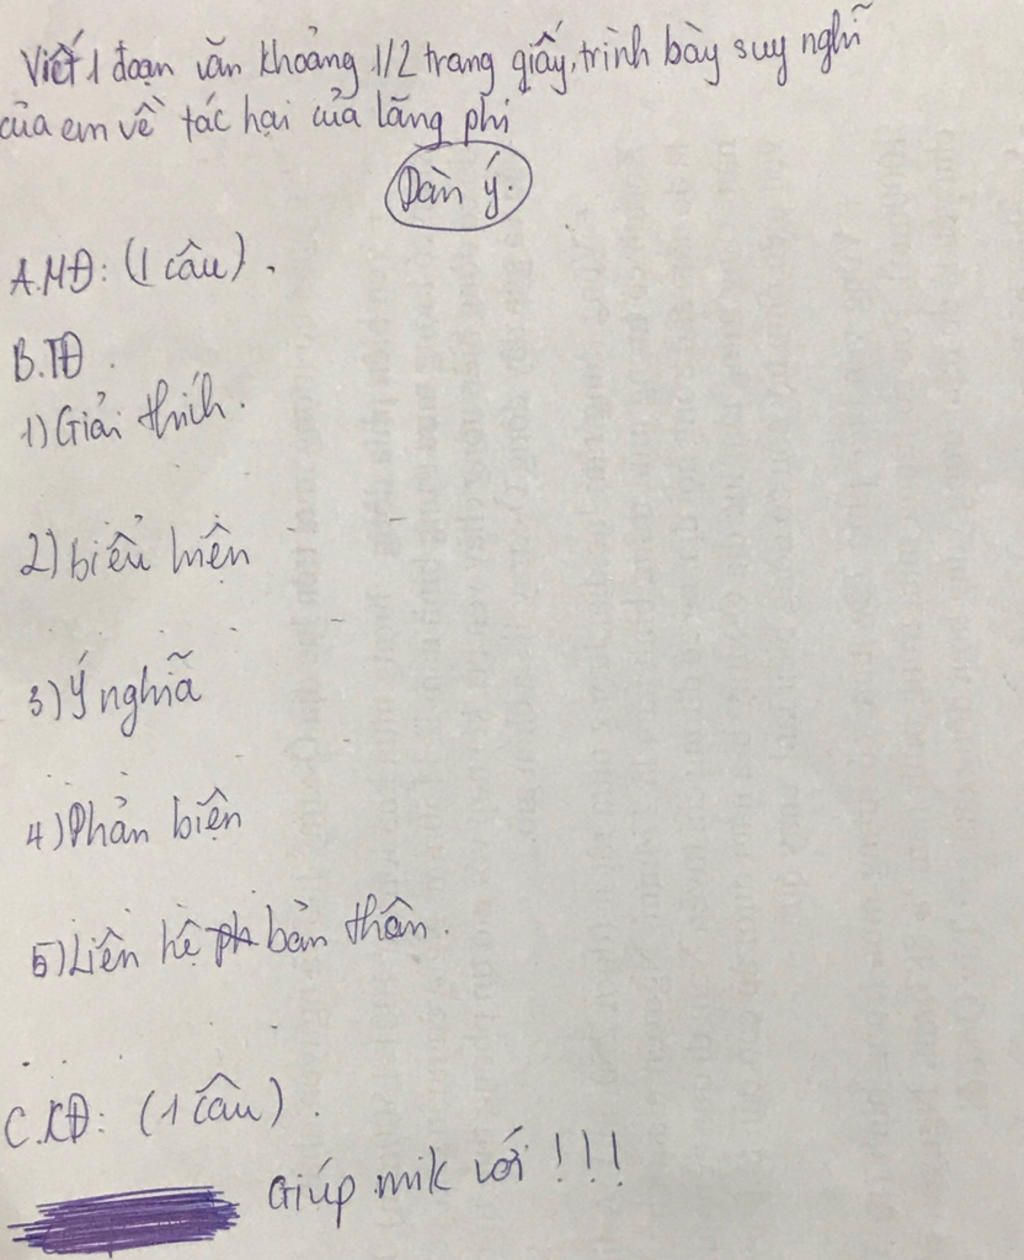 Viết 1 đoạn văn khoảng 1/2 trang giấy, trình bày suy nghĩ
của em về tác hại của lãng phí
Dàn ý.
A.MĐ: (1 câu).
B.TĐ.
1) Giải thích.
2) biểu hiện
3) Ý nghĩã
4) Phản biện
5) Liên hệ bản thân.
C.KĐ: (1 câu).
Giúp mik với !!!